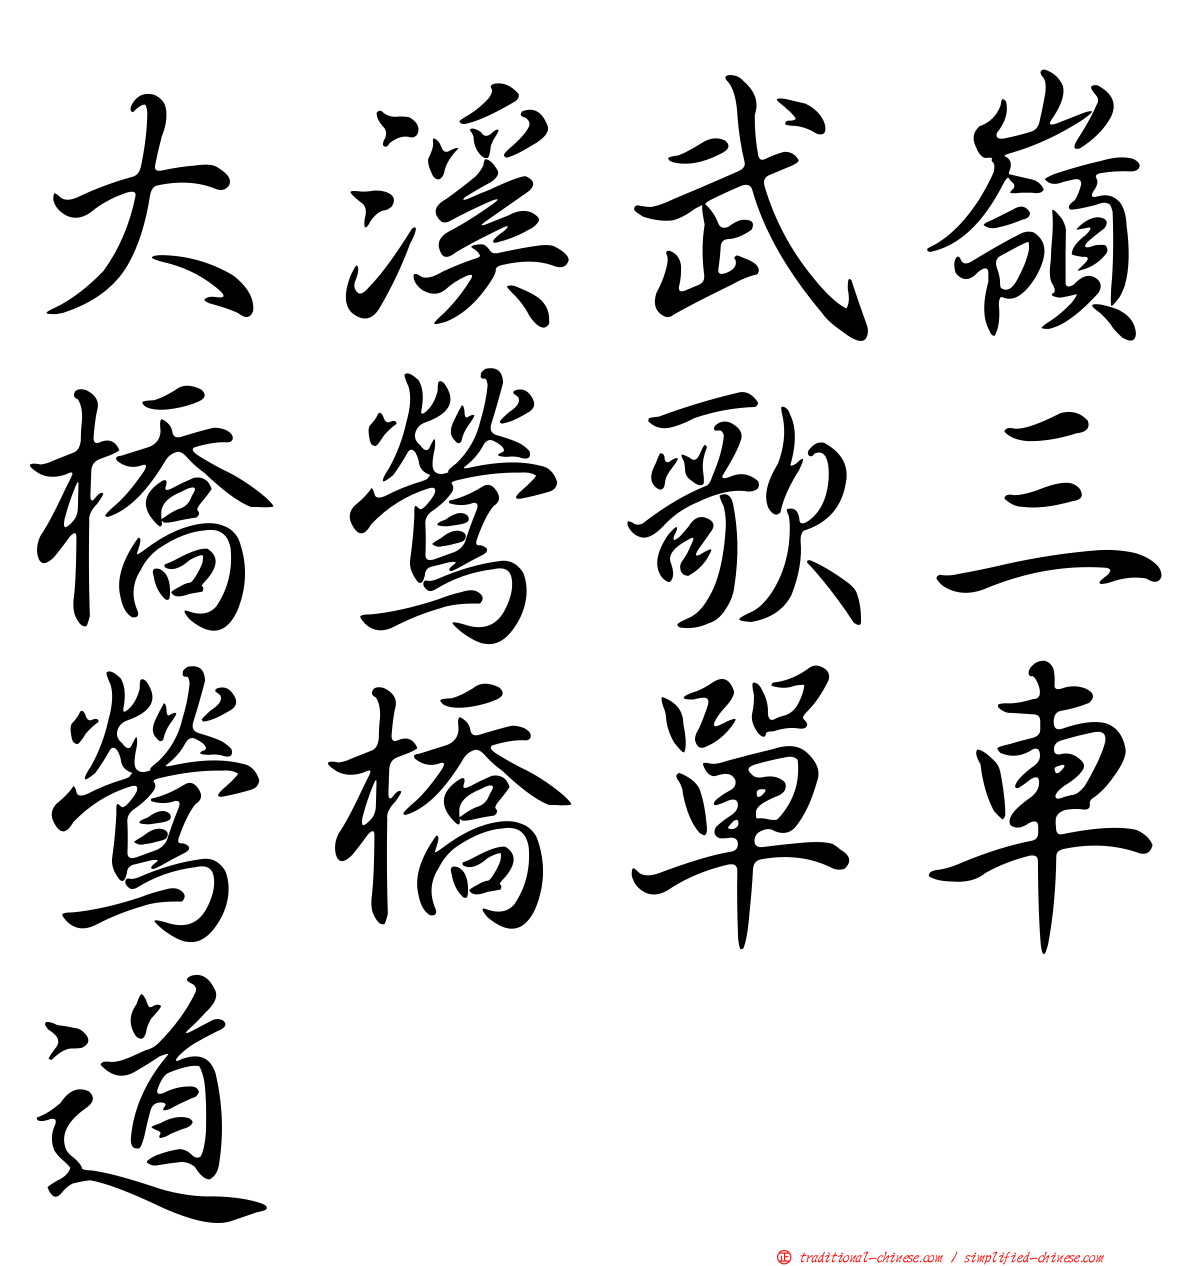 大溪武嶺
橋鶯歌三
鶯橋單車
道
正 traditional-chinese.com / simplified-chinese.com